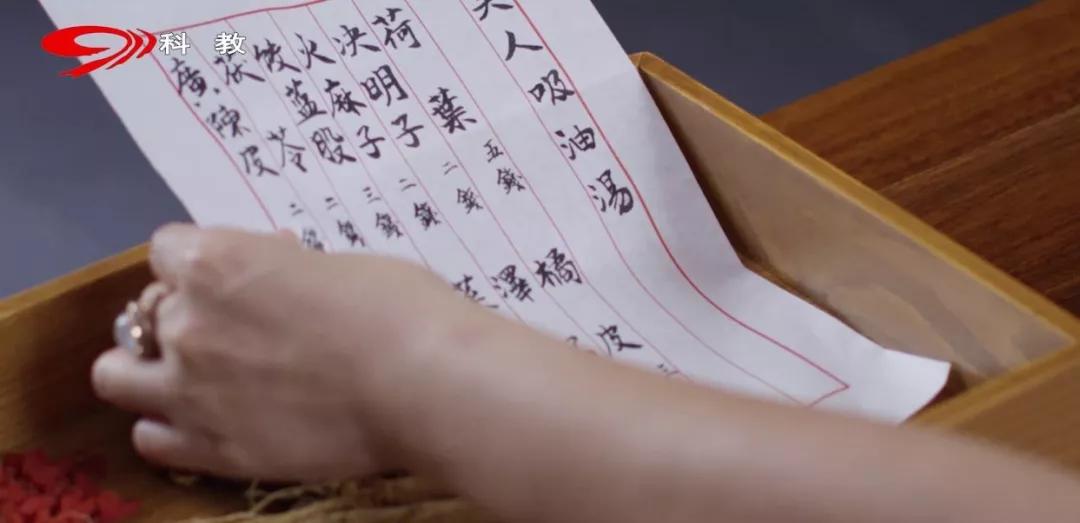 人吸油湯
荷葉 五錢 橘皮 三
决明子 二錢 澤
火麻子 二錢
蓝股 三錢
茯苓 二錢
廣陳皮 二錢
科教